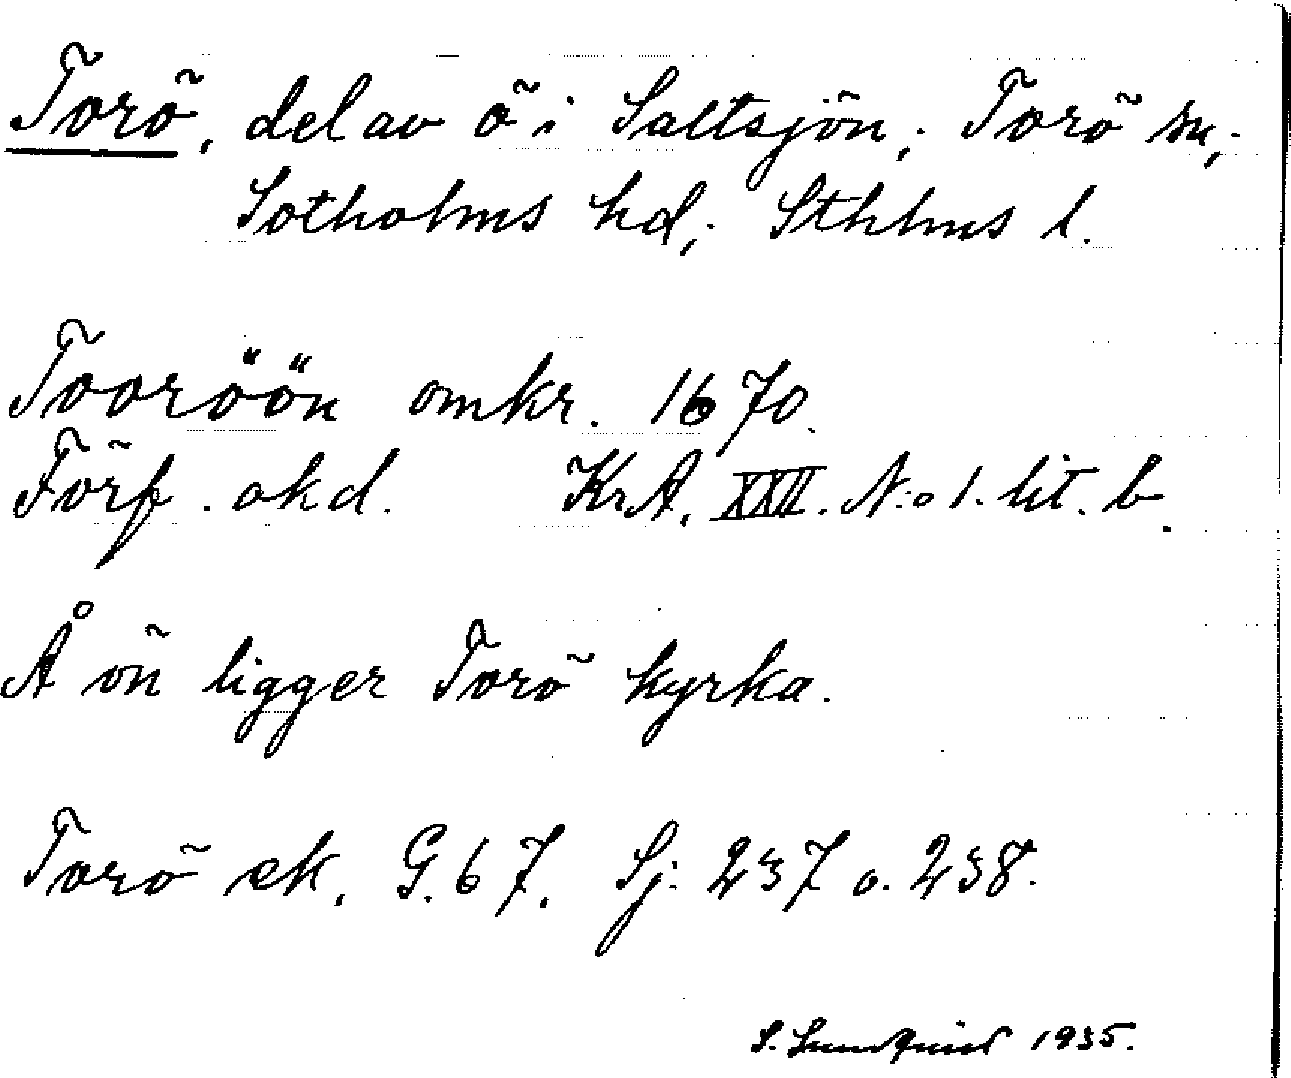 Torö, del av ö i Saltsjön; Torö sn;
Sotholms hd; Sthlms l.
Tooröön omkr. 1670.
Förf. okd. KrA. XXII. N:o 1. lit. b.
Å ön ligger Torö kyrka.
Torö ek. G. 67. Sj. 237 o. 238.
S. Lundquist 1935.